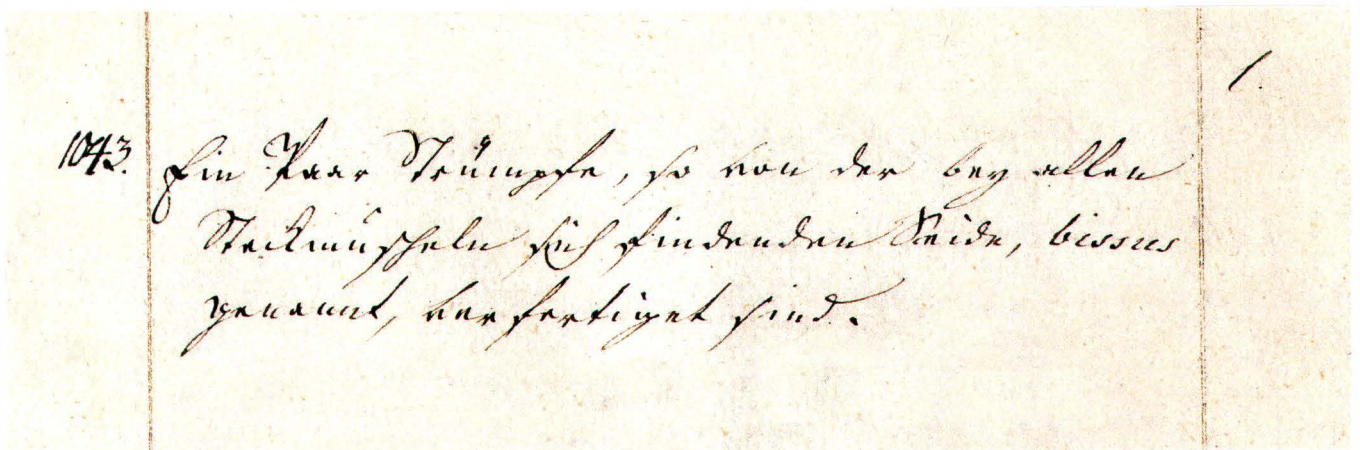 1.
1043. Ein Paar Strümpfe, so von der bey allen
Steckmuscheln sich findenden Seide, bissus
genannt, verfertiget sind.